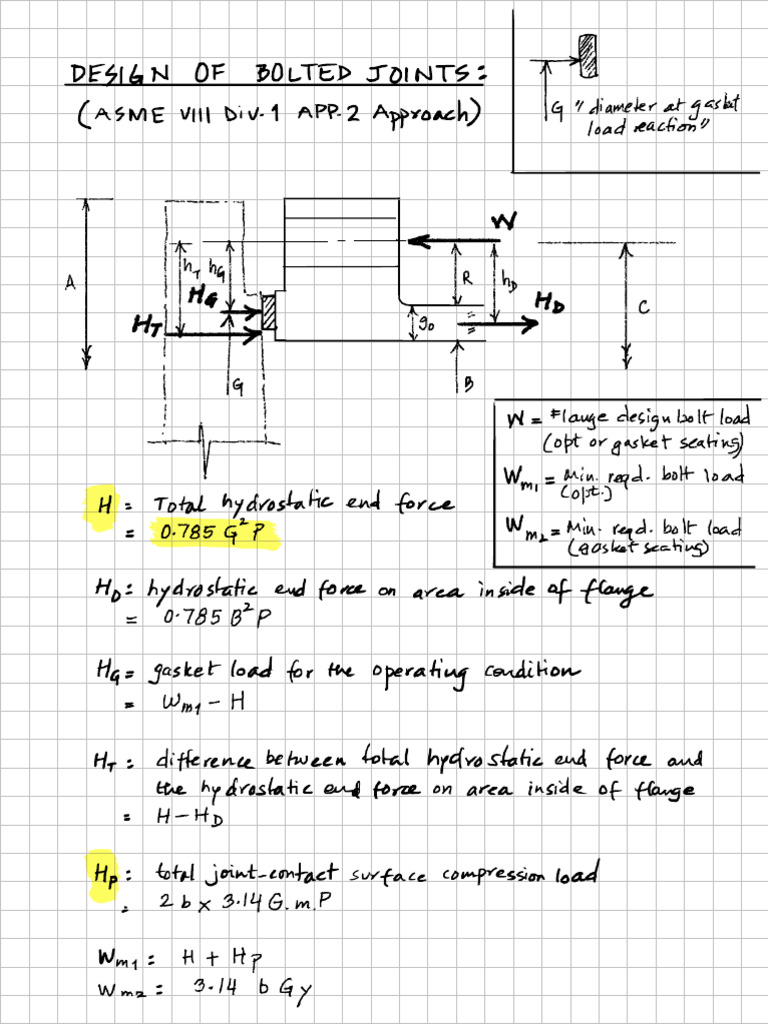 DESIGN OF BOLTED JOINTS:
(ASME VIII Div.1 APP.2 Approach)
G "diameter at gasket
load reaction"
W
A
hT
hG
R
hD
HG
HD
C
HT
g0
G
B
W = Flange design bolt load
(opt or gasket seating)
Wm1 = Min. reqd. bolt load
(opt.)
Wm2 = Min. reqd. bolt load
(gasket seating)
H = Total hydrostatic end force
= 0.785 G²P
HD = hydrostatic end force on area inside of flange
= 0.785 B²P
HG = gasket load for the operating condition
= Wm1 - H
HT = difference between total hydrostatic end force and
the hydrostatic end force on area inside of flange
= H-HD
Hp = total joint-contact surface compression load
= 2 b x 3.14 G.m.P
Wm1 = H + Hp
Wm2 = 3.14 b Gy